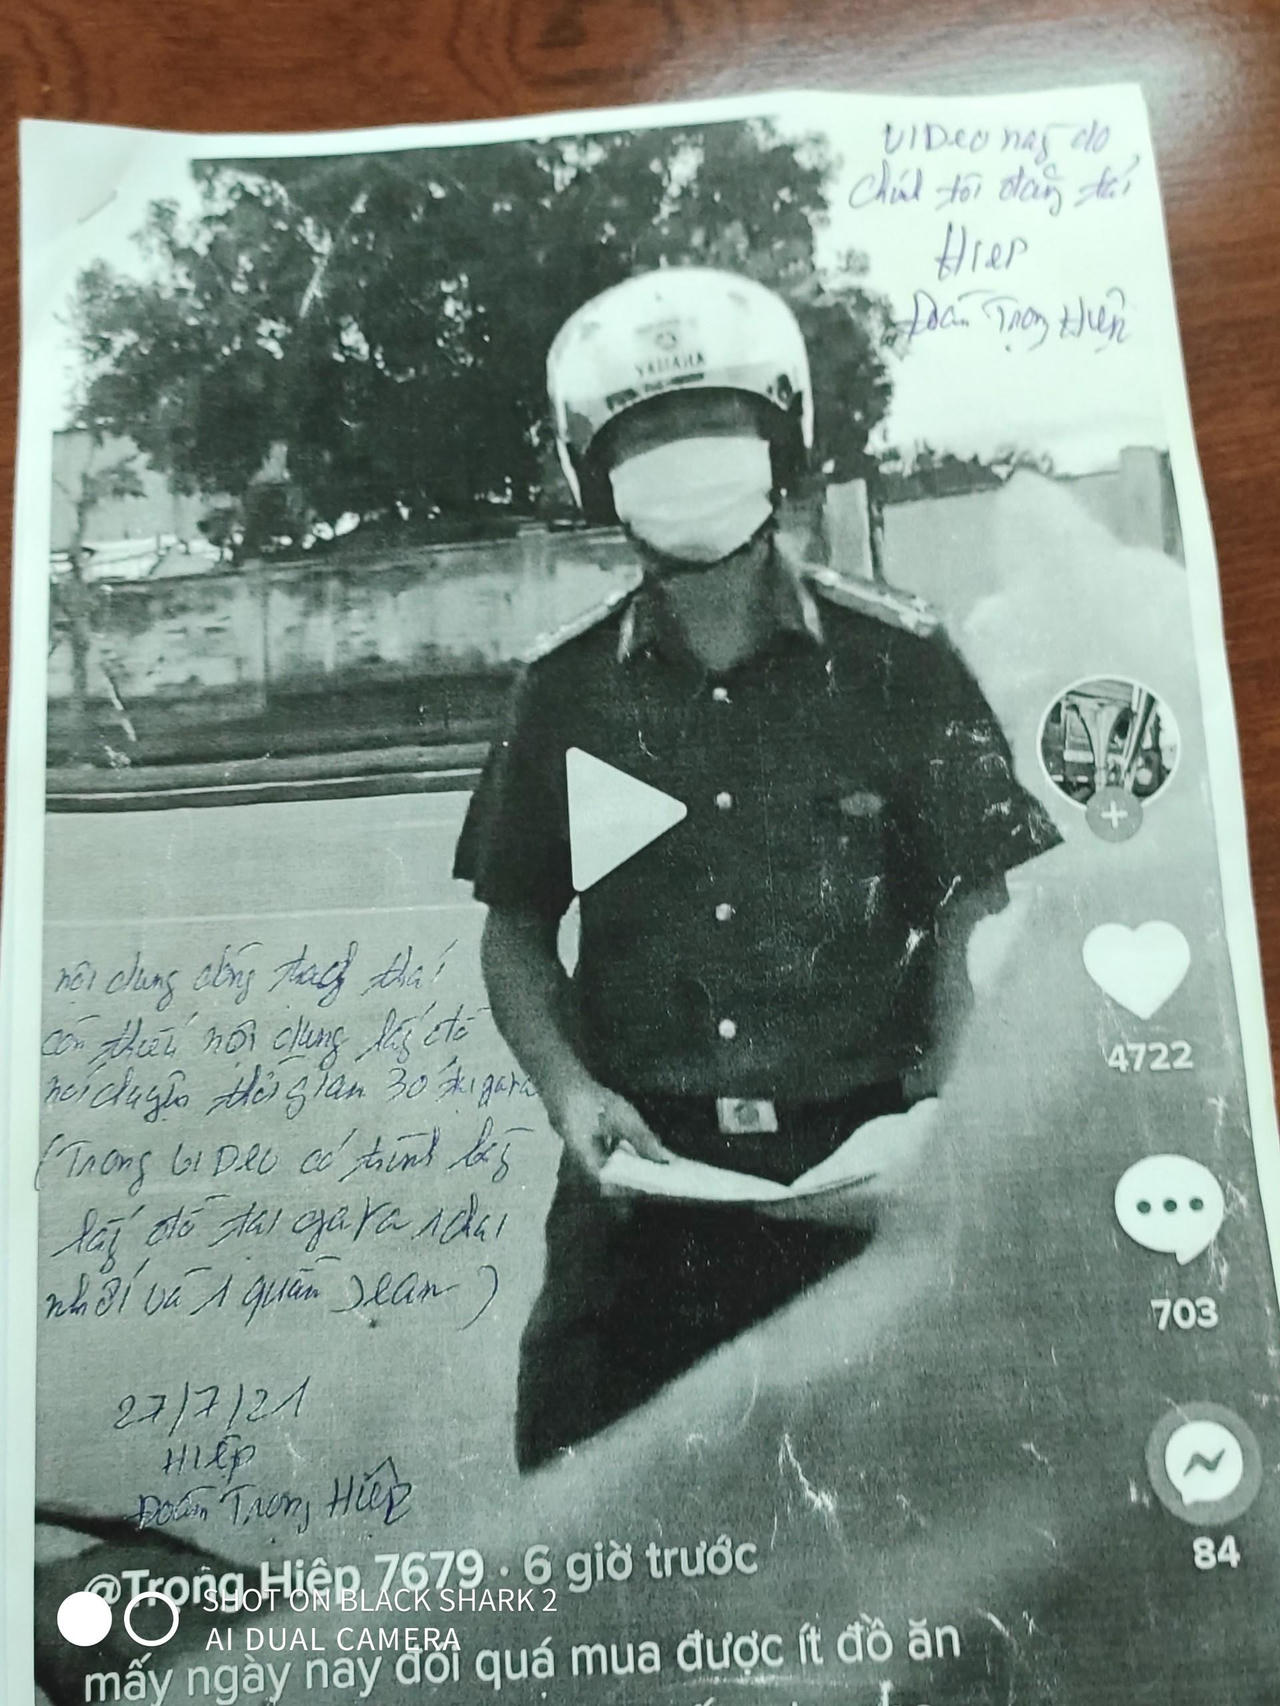 VIDeo nay do
chính tôi đăng tải
Hiep
Đoàn Trọng Hiệp
YAMAHA
nội dung đúng
còn thiếu nội dung lấy đồ
thời gian 30 tại gara
(Trong VIDeo có trình bày
lấy đồ tại gara 1 chai
nhớt và 1 quần Jean)
27/7/21
Hiệp
Đoàn Trọng Hiệp
4722
703
84
@Trọng Hiệp 7679 · 6 giờ trước
SHOT ON BLACK SHARK 2
AI DUAL CAMERA
mấy ngày nay đói quá mua được ít đồ ăn